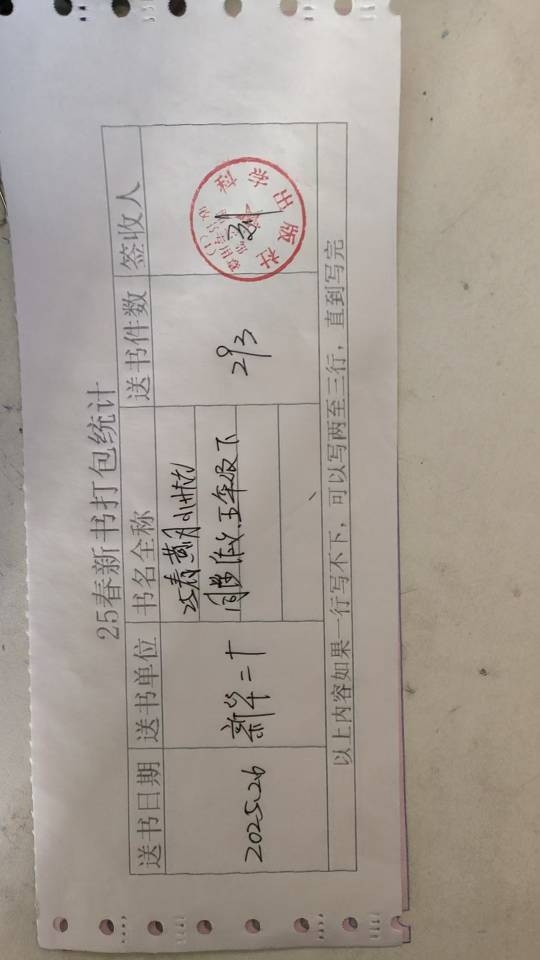 25春新书打包统计
送书日期 送书单位 书名全称 送书件数 签收人
2025.2.6 新华二 25春 293
五年级下
出版社
以上内容如果一行写不下，可以写两至三行，直到写完